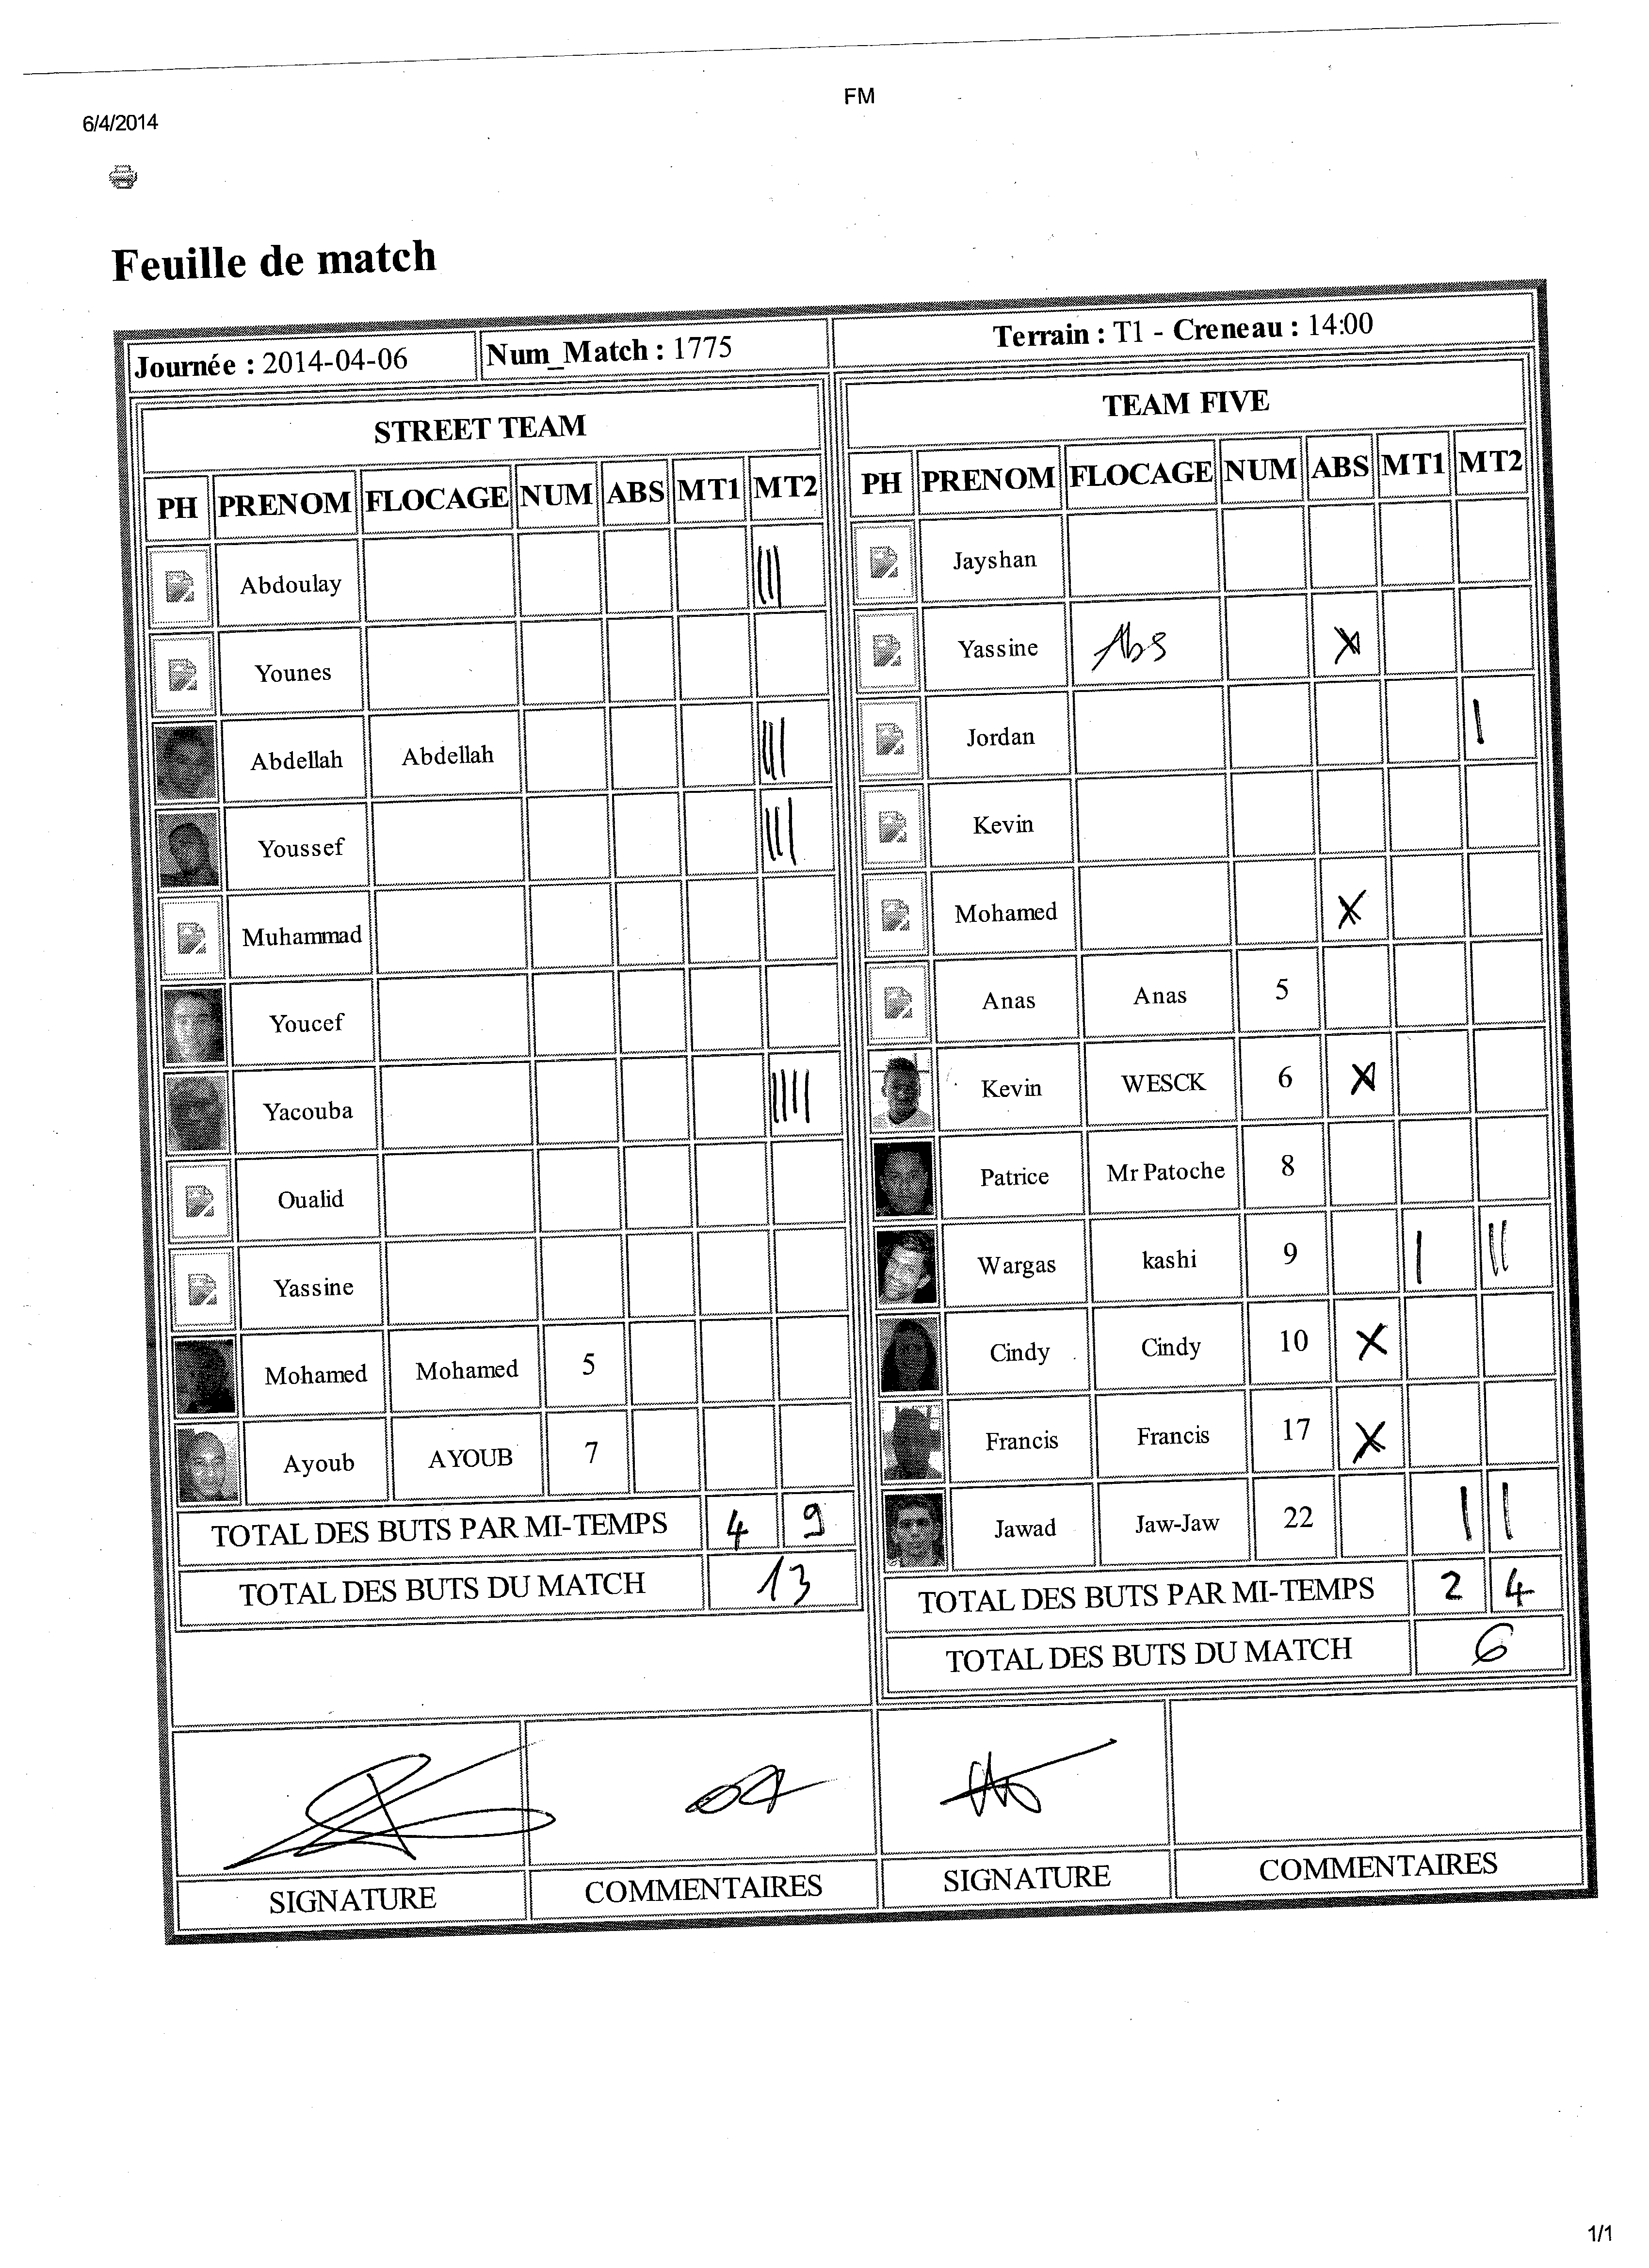 FM
6/4/2014
Feuille de match
Journée : 2014-04-06 Num_Match : 1775 Terrain : T1 - Creneau : 14:00
STREET TEAM
PH PRENOM FLOCAGE NUM ABS MT1 MT2
Abdoulay |||
Younes
Abdellah Abdellah |||
Youssef |||
Muhammad
Youcef
Yacouba ||||
Oualid
Yassine
Mohamed Mohamed 5
Ayoub AYOUB 7
TOTAL DES BUTS PAR MI-TEMPS 4 9
TOTAL DES BUTS DU MATCH 13
TEAM FIVE
PH PRENOM FLOCAGE NUM ABS MT1 MT2
Jayshan
Yassine Abs X
Jordan |
Kevin
Mohamed X
Anas Anas 5
Kevin WESCK 6 X
Patrice Mr Patoche 8
Wargas kashi 9 | ||
Cindy Cindy 10 X
Francis Francis 17 X
Jawad Jaw-Jaw 22 | |
TOTAL DES BUTS PAR MI-TEMPS 2 4
TOTAL DES BUTS DU MATCH 6
SIGNATURE COMMENTAIRES SIGNATURE COMMENTAIRES
1/1